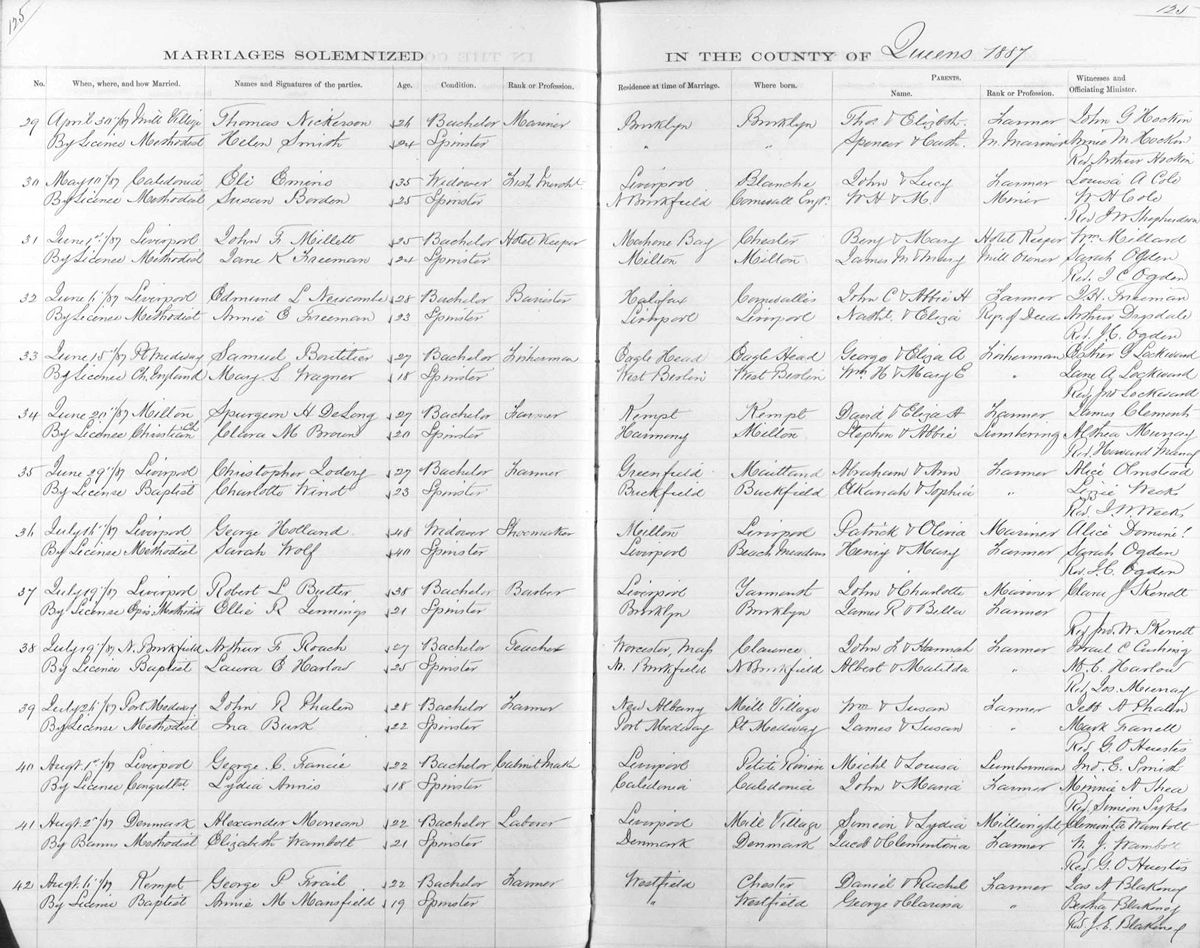 125
125
MARRIAGES SOLEMNIZED IN THE COUNTY OF Queens 1887
No. When, where, and how Married. Names and Signatures of the parties. Age. Condition. Rank or Profession. Residence at time of Marriage. Where born. PARENTS. Name. Rank or Profession. Witnesses and Officiating Minister.
29 April 30/87 Mill Village Thomas Nickerson 26 Bachelor Mariner Brooklyn Brooklyn Thos & Elizbth. Farmer John G Hockin
By Licence Methodist Helen Smith 24 Spinster " " Spencer & Cath. M. Mariner Annie M Hockin
Rev Arthur Hockin
30 May 10/87 Caledonia Eli Emino 35 Widower Fish Mercht Liverpool Blanche John & Lucy Farmer Louisa A Cole
By Licence Methodist Susan Bordon 25 Spinster N Brookfield Cornwall Engd. W H & M. Miner W H Cole
Rev J W Shepherdson
31 June 1st/87 Liverpool John F. Millett 25 Bachelor Hotel Keeper Mahone Bay Chester Benj & Mary Hotel Keeper Wm Millard
By Licence Methodist Jane K Freeman 24 Spinster Milton Milton James M & Mary Mill Owner Sarah Ogden
Rev. J C Ogden
32 June /87 Liverpool Edmund L Newcombe 28 Bachelor Barister Halifax Cornwallis John C & Abbie H Farmer J. H. Freeman
By Licence Methodist Annie E Freeman 23 Spinster Liverpool Liverpool Nathl. & Eliza Reg. of Deeds Arthur Drysdale
Rev. J. C. Ogden
33 June 15/87 Pt Medway Samuel Boutilier 27 Bachelor Fisherman Eagle Head Eagle Head George & Eliza A Fisherman Esther G Lockward
By Licence Ch. England Mary L Wagner 18 Spinster West Berlin West Berlin Wm H & Mary E " Jane A Lockward
Rev Jno Lockward
34 June 20/87 Milton Spurgeon H DeLong 27 Bachelor Farmer Kempt Kempt David & Eliza A Farmer James Clements
By Licence Christian Ch Clara M Brown 20 Spinster Harmony Milton Stephen & Abbie Lumbering Althea Murray
Rev. Howard Murray
35 June 29/87 Liverpool Christopher 27 Bachelor Farmer Greenfield Maitland Abraham & Ann Farmer Alice Olmstead
By License Baptist Charlotte Winot 23 Spinster Buckfield Buckfield Elkanah & Sophia " Lizzie Weeks
Rev. J. W Weeks
36 July 16/87 Liverpool George Holland 48 Widower Shoemaker Milton Liverpool Patrick & Olivia Mariner Alice
By License Methodist Sarah Wolf 40 Spinster Liverpool Beach Meadows Henry & Mary Farmer Sarah Ogden
Rev J. C. Ogden
37 July 19/87 Liverpool Robert L Butler 28 Bachelor Barber Liverpool Yarmouth John & Charlotte Mariner Clara J Skerrett
By License Epis. Methodist Ollie R Jennings 21 Spinster Brooklyn Brooklyn James R & Bella Farmer
Rev Jno. W. Skerrett
38 July 19/87 N. Brookfield Arthur F Roach 27 Bachelor Teacher Worcester, Mass Clarence John F & Hannah Farmer Israel C Cushing
By Licence Baptist Laura E Harlow 25 Spinster N. Brookfield N Brookfield Albert & Matilda " M. C. Harlow
Rev. Jos. Murray
39 July 26/87 Port Medway John R Phalen 28 Bachelor Farmer New Albany Mill Village Wm & Susan Farmer Jeff A Phalen
By License Methodist Ina Burk 22 Spinster Port Medway Pt Medway James & Susan " Mark
Rev. G. O Huestis
40 Augt. 1st/87 Liverpool George C. Francie 22 Bachelor Cabinet Maker Liverpool Petite Riviere Michl & Louisa Lumberman Jno E. Smith
By Licence Congretlst Lydia Annis 18 Spinster Caledonia Caledonia John & Maria Farmer Minnie A Shea
Rev. Simeon Sykes
41 Augt. 2/87 Denmark Alexander 22 Bachelor Laborer Liverpool Mill Village Simeon & Lydia Millwright Clementa Wambolt
By Banns Methodist Elizabeth Wambolt 21 Spinster Denmark Denmark Jacob & Clementona Farmer W. J. Wambolt
Rev G. O Huestis
42 Augt. 6/87 Kempt George P. Frail 22 Bachelor Farmer Westfield Chester Daniel & Rachel Farmer Jas A Blakeney
By License Baptist Annie M Mansfield 19 Spinster " Westfield George & Clarissa " Bertha Blakeney
Rev J. E. Blakeney